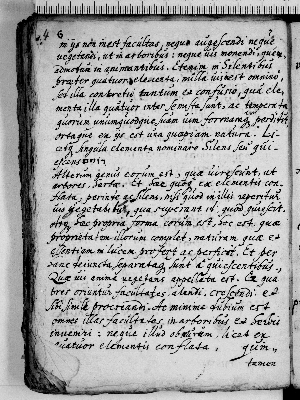 4 6
m ijs non inest facultas, neque augescendi neque
vegetandi, ut in arboribus: neque vis movendi, quem
admodum in animantibus. Etenim in Silentibus
praeter quatuor elementa, nulla vis est omnino
Sola concretio tantum ex confusio, qua ele
menta illa quatuor inter se mista sunt, ac temperata
quorum unumquodque suam vim formamque perdidit
ortaque ex ijs est una quaepiam natura.
singula elementa nominare Silens seu qui
escens
Alterum genus eorum est, quae virescunt, ut
arbores, herbae. Et haec quoque ex elementis con
flata, perinde ac Silens, nisi quod in illis reperitur
vis vegetabilis, qua
haec propria forma eorum est, hoc est, quae
proprietatem illorum complet, naturam quae et
essentiam in lucem profert ac perficit. Et per
hanc sejuncta separataque sunt a quiescentibus,
Quae vis anima vegetans appellata est. Ex qua
tres oriuntur facultates, alendi, crescendi et
sibi simile procreandi. At minime dubium est
omnes illas facultates in arboribus et herbis
inveniri: neque illud obscurum, licet ex
quatuor elementis conflata, quae,
tamen